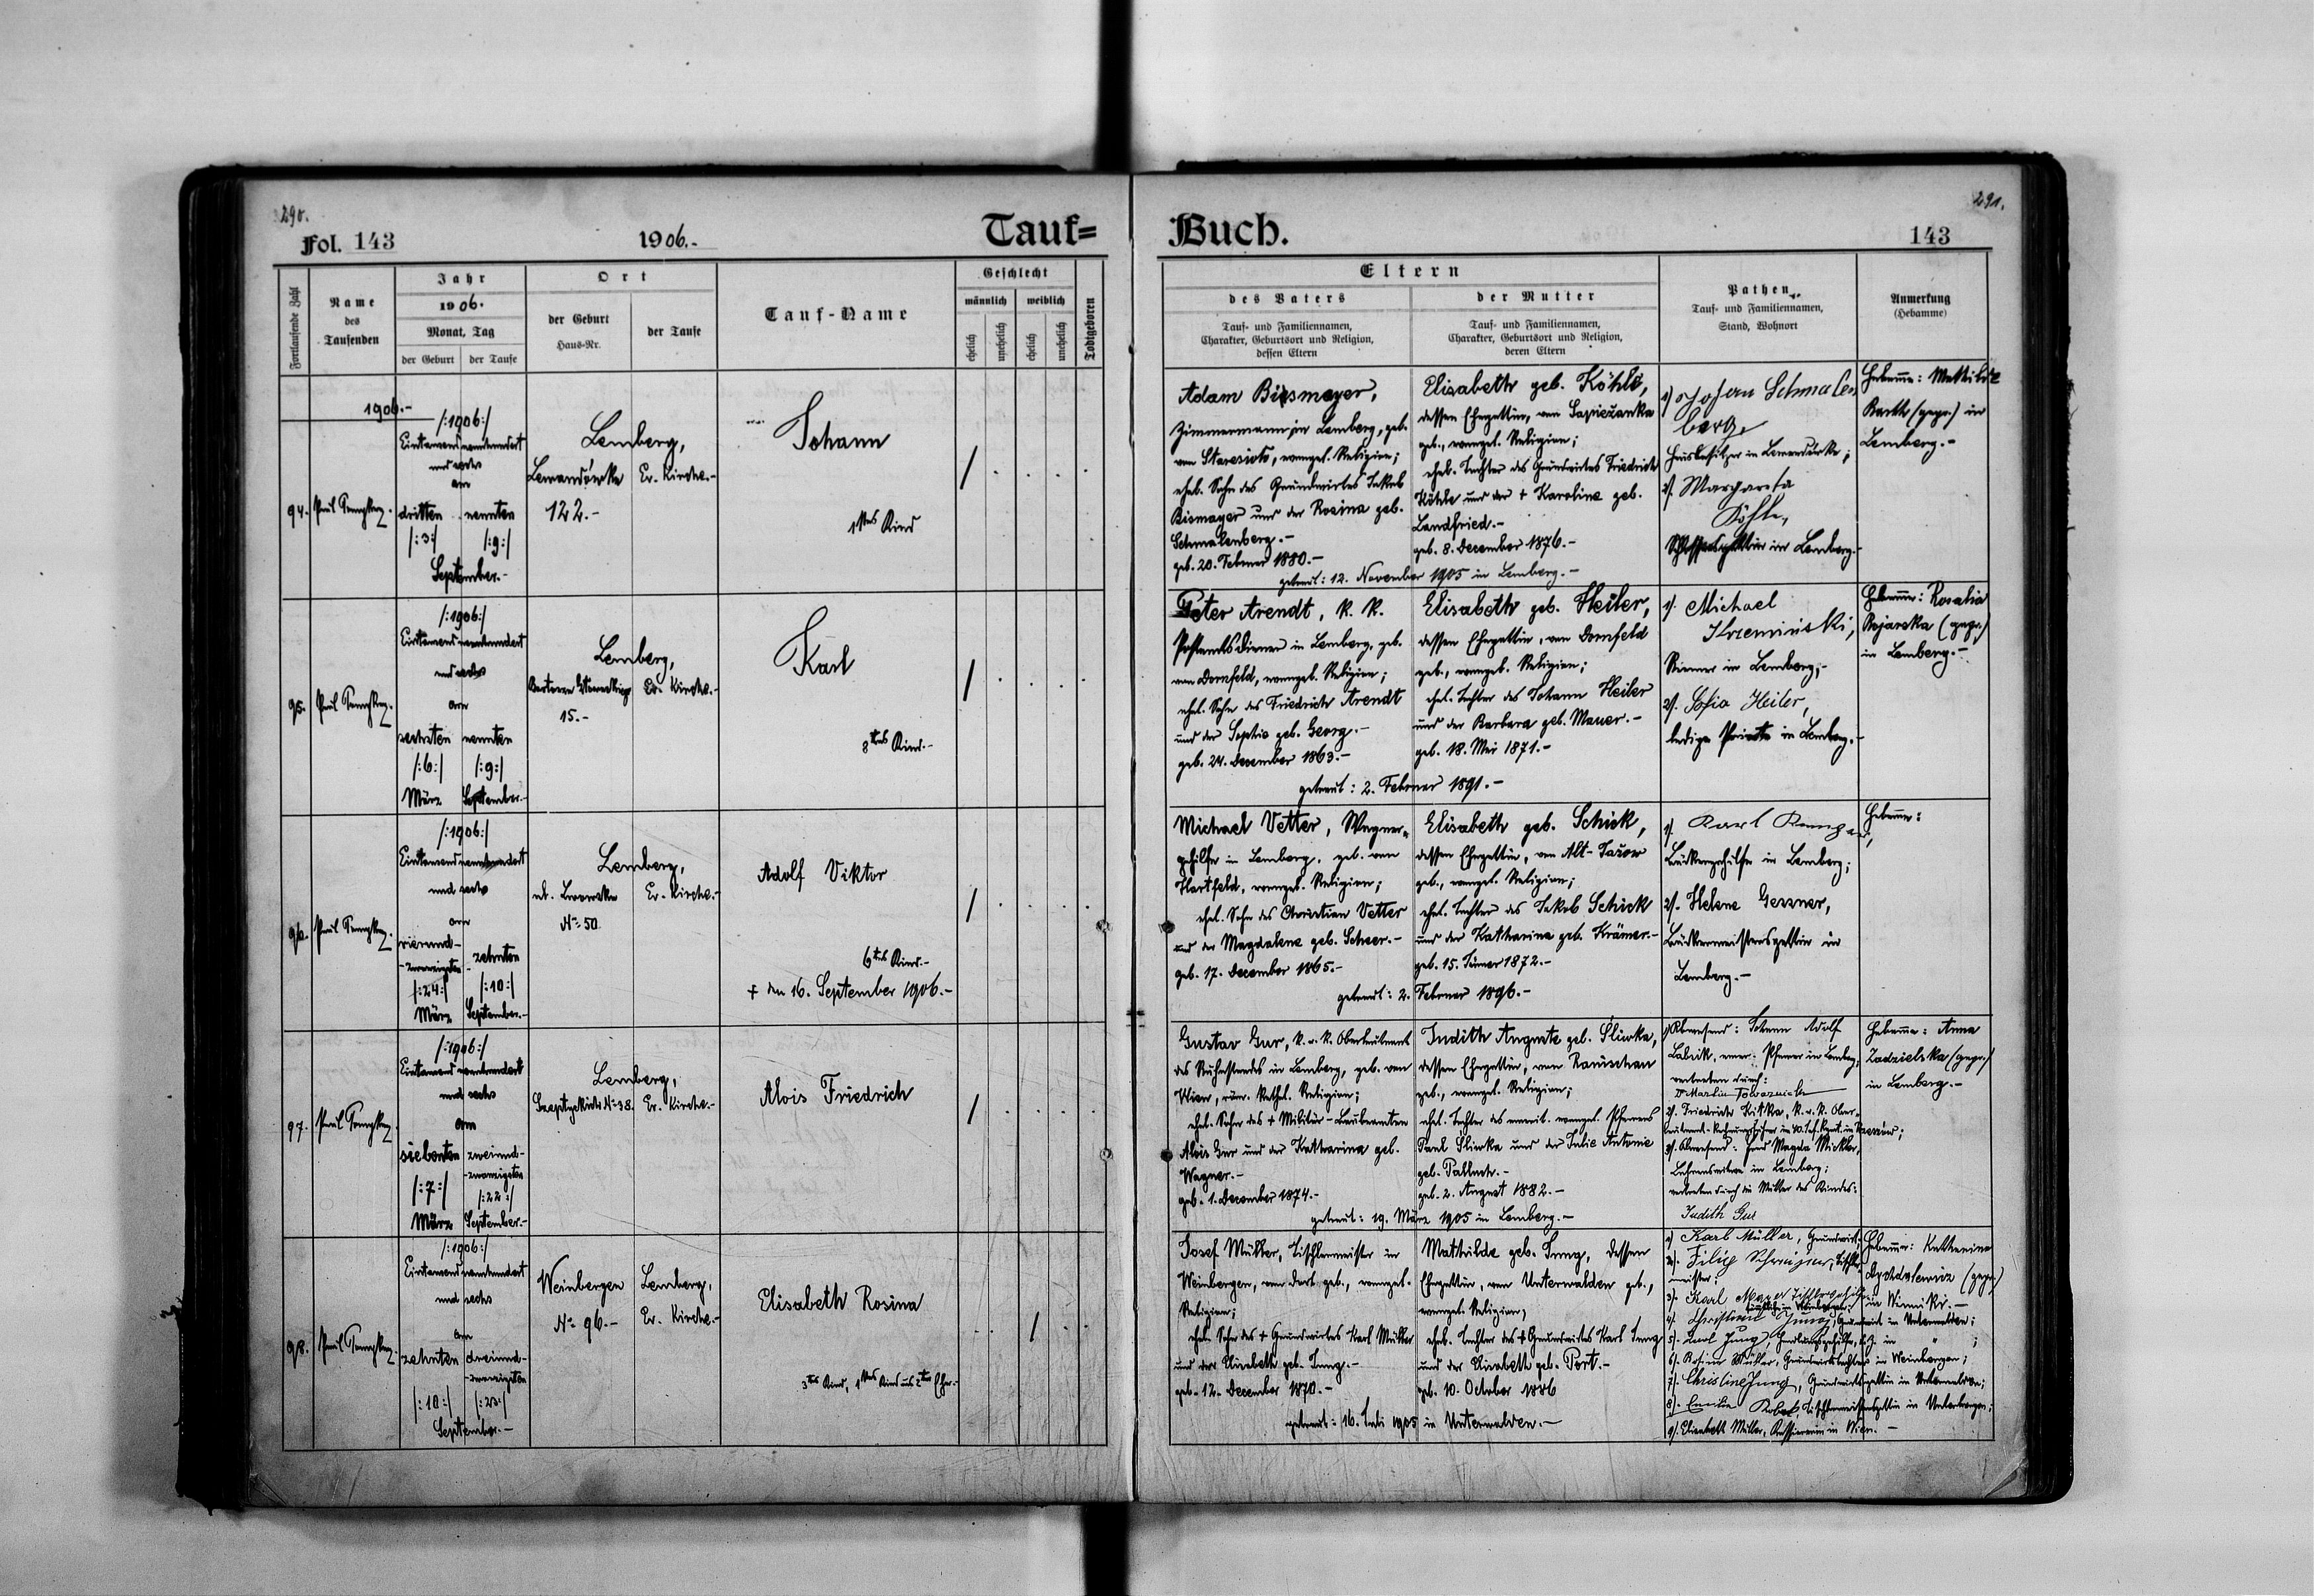 290.
Fol. 143
1906.-
Tauf=
Fortlaufende Zahl
Name
des
Taufenden
Jahr
1906.
Monat, Tag
der Geburt
der Taufe
Ort
der Geburt
Haus-Nr.
der Taufe
Tauf-Name
Geschlecht
männlich
weiblich
ehelich
unehelich
ehelich
unehelich
Todtgeboren
1906.-
94.
/:1906:/
Eintausendneunhundert
und sechs
am
dritten
neunten
/:3:/
/:9:/
September.-
Lemberg,
Ev. Kirche.-
122.-
Johann
1tes Kind
95.
/:1906:/
Eintausendneunhundert
und sechs
am
sechsten
neunten
/:6:/
/:9:/
März
September.-
Lemberg,
Ev. Kirche.-
15.-
Karl
3tes Kind.-
96.
/:1906:/
Eintausendneunhundert
und sechs
am
vierund-
-zwanzigsten
zehnten
/:24:/
/:10:/
März
September.-
Lemberg,
Ev. Kirche.-
No 50
Adolf Viktor
6tes Kind.-
+ den 16. September 1906.-
97.
/:1906:/
Eintausendneunhundert
und sechs
am
siebenten
zweiund-
-zwanzigsten
/:7:/
/:22:/
März
September.-
Lemberg,
No 38.
Ev. Kirche.-
Alois Friedrich
98.
/:1906:/
Eintausendneunhundert
und sechs
am
zehnten
dreiund-
-zwanzigsten
/:10:/
/:23:/
September.-
Weinbergen
No 96.-
Lemberg,
Ev. Kirche.-
Elisabeth Rosina
3tes Kind, 1tes Kind aus 2ter Ehe.-
291.
Buch.
143
Eltern
des Vaters
Tauf- und Familiennamen,
Charakter, Geburtsort und Religion,
dessen Eltern
der Mutter
Tauf- und Familiennamen,
Charakter, Geburtsort und Religion,
deren Eltern
Pathen
Tauf- und Familiennamen,
Stand, Wohnort
Anmerkung
(Hebamme)
Adam Bismayer,
Zimmermann in Lemberg, geb.
von evangel. Religion;
ehel. Sohn des Grundwirtes Jakob
Bismayer und der Rosina geb.
Schmalenberg.-
geb. 20. Februar 1880.-
Elisabeth geb. Köhle,
dessen Ehegattin, von Sapieżanka
geb., evangel. Religion;
ehel. Tochter des Grundwirtes Friedrich
Köhle und der + Karoline geb.
Landfried.-
geb. 8. December 1876.-
getraut: 12. November 1905 in Lemberg.-
1). Johann Schmalen
berg,
Hausbesitzer in
2). Margareta
Köhle,
in Lemberg.-
Hebamme: Mathilde
Barth (gepr.) in
Lemberg.-
Peter Arendt, k. k.
Postamtsdiener in Lemberg, geb.
von Dornfeld, evangel. Religion;
ehel. Sohn des Friedrich Arendt
und der Sophie geb. Georg.-
geb. 24. December 1863.-
Elisabeth geb. Heiler,
dessen Ehegattin, von Dornfeld
geb., evangel. Religion;
ehel. Tochter des Johann Heiler
und der Barbara geb. Mauer.-
geb. 18. Mai 1871.-
getraut: 2. Februar 1891.-
1). Michael
in Lemberg;-
2). Sofia Heiler,
ledige Private in Lemberg.-
Hebamme: Rosalia
(gepr.)
in Lemberg.-
Michael Vetter, Wagner-
gehilfe in Lemberg, geb. von
Hartfeld, evangel. Religion;
ehel. Sohn des Christian Vetter
und der Magdalene geb. Scheer.-
geb. 17. December 1865.-
Elisabeth geb. Schick,
dessen Ehegattin, von Alt-Jażow
geb., evangel. Religion;
ehel. Tochter des Jakob Schick
und der Katharina geb. Krämer.-
geb. 15. Jänner 1872.-
getraut: 2. Februar 1896.-
1). Karl
Bäckergehilfe in Lemberg;
2). Helene Gessner,
Bäckermeistersgattin in
Lemberg.-
Hebamme:
Gustav Gur, k. u. k. Oberleutnant
des Ruhestandes in Lemberg, geb. von
Wien, röm. kathol. Religion;
ehel. Sohn des + Militär-Baubeamten
Alois Gur und der Katharina geb.
Wagner.-
geb. 1. December 1874.-
Judith Auguste geb. Sliwka,
dessen Ehegattin, von Ranischau
geb., evangel. Religion;
ehel. Tochter des emerit. evangel. Pfarrers
Paul Sliwka und der Julie Antonie
geb.
geb. 2. August 1882.-
getraut: 19. März 1905 in Lemberg.-
1). Abwesend: Johann Adolf
Pfarrer in Lemberg,
vertreten durch:
2). Friedrich k. u. k. Ober-
3). Abwesend: Frau Magda
in Lemberg;
vertreten durch die Mutter des Kindes:
Judith Gur
Hebamme: Anna
Zadzielska (gepr.)
in Lemberg.-
Josef Müller, Tischlermeister in
Weinbergen, von dort geb., evangel.
Religion;
ehel. Sohn des + Grundwirtes Karl Müller
und der Elisabeth geb. Jung.-
geb. 12. December 1870.-
Mathilde geb. Jung, dessen
Ehegattin, von Unterwalden geb.,
evangel. Religion;
ehel. Tochter des + Grundwirtes Karl Jung
und der Elisabeth geb. Port.-
geb. 10. October 1886
getraut: 16. Juli 1905 in Unterwalden.-
1). Karl Müller, Grundwirt;
2). Filip Tischler-
meister;
3). Karl
4). Christian Jung, Grundwirt in Unterwalden;
5). Karl Jung,
6). Rosina Müller, Grundwirtstochter in Weinbergen;
7). Christine Jung, Grundwirtsgattin in Unterwalden;
8). Emilie Tischlermeistersgattin in
9). Elisabeth Müller, in Wien.-
Hebamme: Katharina
(gepr.)
in Winniki.-